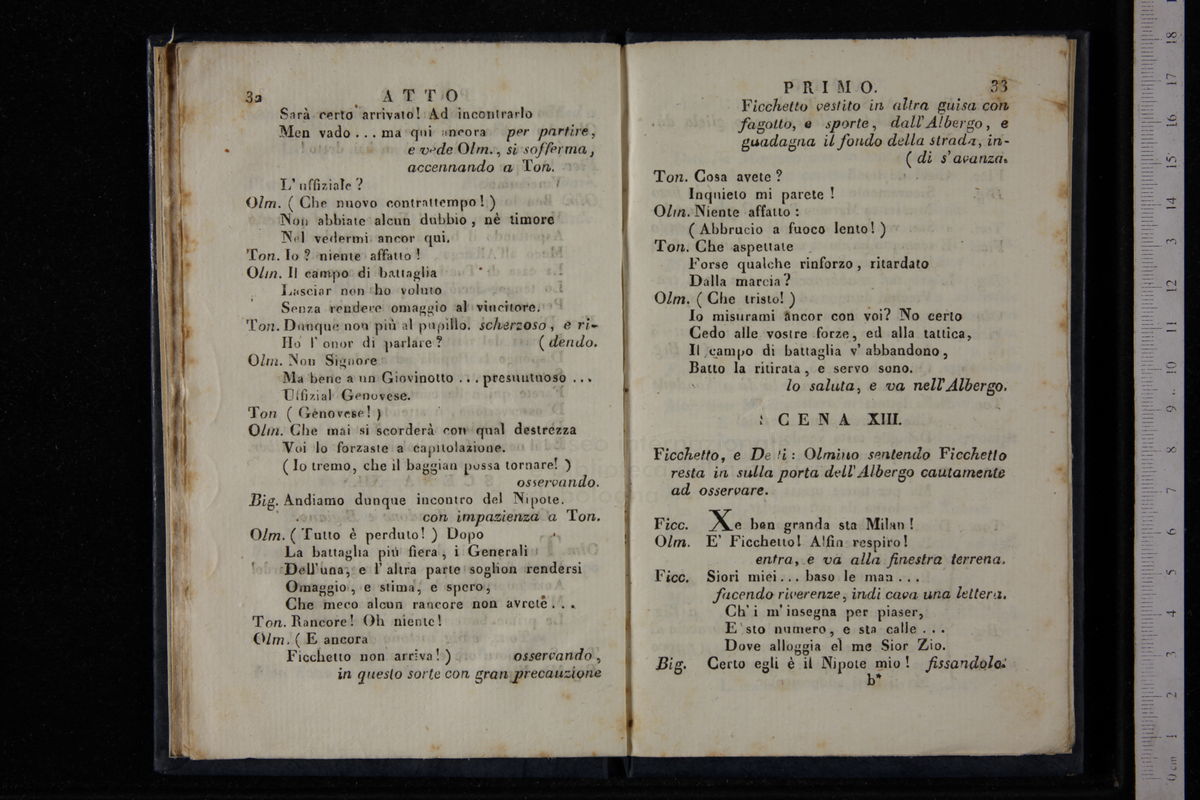 32 ATTO
Sarà certo arrivato! Ad incontrarlo
Men vado... ma qui ancora per partire,
e vede Olm., si sofferma,
accennando a Ton.
L'uffiziale?
Olm. (Che nuovo contrattempo!)
Non abbiate alcun dubbio, nè timore
Nel vedermi ancor qui.
Ton. Io? niente affatto!
Olm. Il campo di battaglia
Lasciar non ho voluto
Senza rendere omaggio al vincitore.
Ton. Dunque non più al pupillo. scherzoso, e ri-
Ho l'onor di parlare? (dendo.
Olm. Non Signore
Ma bene a un Giovinotto... presuntuoso...
Uffizial Genovese.
Ton (Genovese!)
Olm. Che mai si scorderà con qual destrezza
Voi lo forzaste a capitolazione.
(Io tremo, che il baggian possa tornare!)
osservando.
Big. Andiamo dunque incontro del Nipote.
con impazienza a Ton.
Olm. (Tutto è perduto!) Dopo
La battaglia più fiera, i Generali
Dell'una, e l'altra parte soglion rendersi
Omaggio, e stima, e spero,
Che meco alcun rancore non avrete...
Ton. Rancore! Oh niente!
Olm. (E ancora
Ficchetto non arriva!) osservando,
in questo sorte con gran precauzione
PRIMO. 33
Ficchetto vestito in altra guisa con
fagotto, e sporte, dall'Albergo, e
guadagna il fondo della strada, in-
(di s'avanza.
Ton. Cosa avete?
Inquieto mi parete!
Olm. Niente affatto:
(Abbrucio a fuoco lento!)
Ton. Che aspettate
Forse qualche rinforzo, ritardato
Dalla marcia?
Olm. (Che tristo!)
Io misurami ancor con voi? No certo
Cedo alle vostre forze, ed alla tattica,
Il campo di battaglia v'abbandono,
Batto la ritirata, e servo sono.
lo saluta, e va nell'Albergo.
SCENA XIII.
Ficchetto, e Detti: Olmino sentendo Ficchetto
resta in sulla porta dell'Albergo cautamente
ad osservare.
Ficc. Xe ben granda sta Milan!
Olm. E' Ficchetto! Alfin respiro!
entra, e va alla finestra terrena.
Ficc. Siori miei... baso le man...
facendo riverenze, indi cava una lettera.
Ch'i m'insegna per piaser,
E sto numero, e sta calle...
Dove alloggia el me Sior Zio.
Big. Certo egli è il Nipote mio! fissandolo.
b*